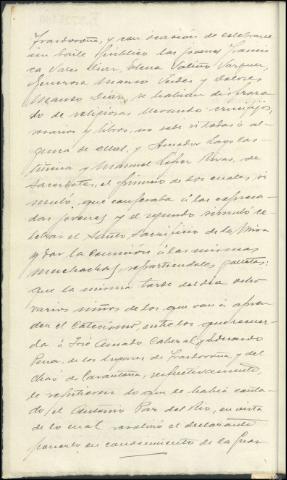 Trasdoroña, y con ocasión de celebrarse
un baile público las jóvenes Francis
ca Vales Vivir, Elena Valiño Vazquez,
Generosa Manso Valdes y Dolores
Manso Diaz, se habian disfraza
do de religiosas llevando crucifijos,
rosarios y libros, no sabe si todas o al
guna de ellas, y Amador Lagelas
y Manuel Rivas, de
Sacerdotes, el primero de los cuales si
muló, que confesaba á las expresa
das jovenes y el segundo simuló ce
lebrar el Santo Sacrificio de la Misa
y dar la Comunión á las mismas
muchachas, repartiendoles galletas:
que la misma tarde del dia ocho
varios niños de los que van á apren
der el Catecismo, entre los que recuer
da á José Amado Cabezal y Leonardo
Pena, de los lugares de Trasdoroña y del
Chao de Carantoña, respectivamente,
le repitieron lo que le habia conta
do el Antonio Paz del Rio, en vista
de lo cual resolvió el declarante
ponerlo en conocimiento de la Guar